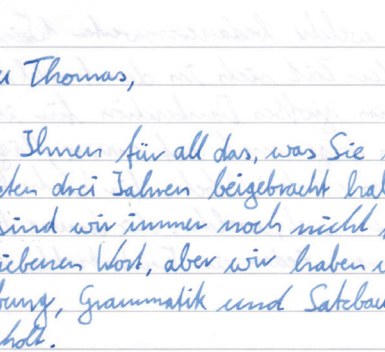 Thomas,
Ihnen für all das, was Sie
drei Jahren beigebracht
sind wir immer noch nicht
Wort, aber wir haben
Grammatik und Satzbau